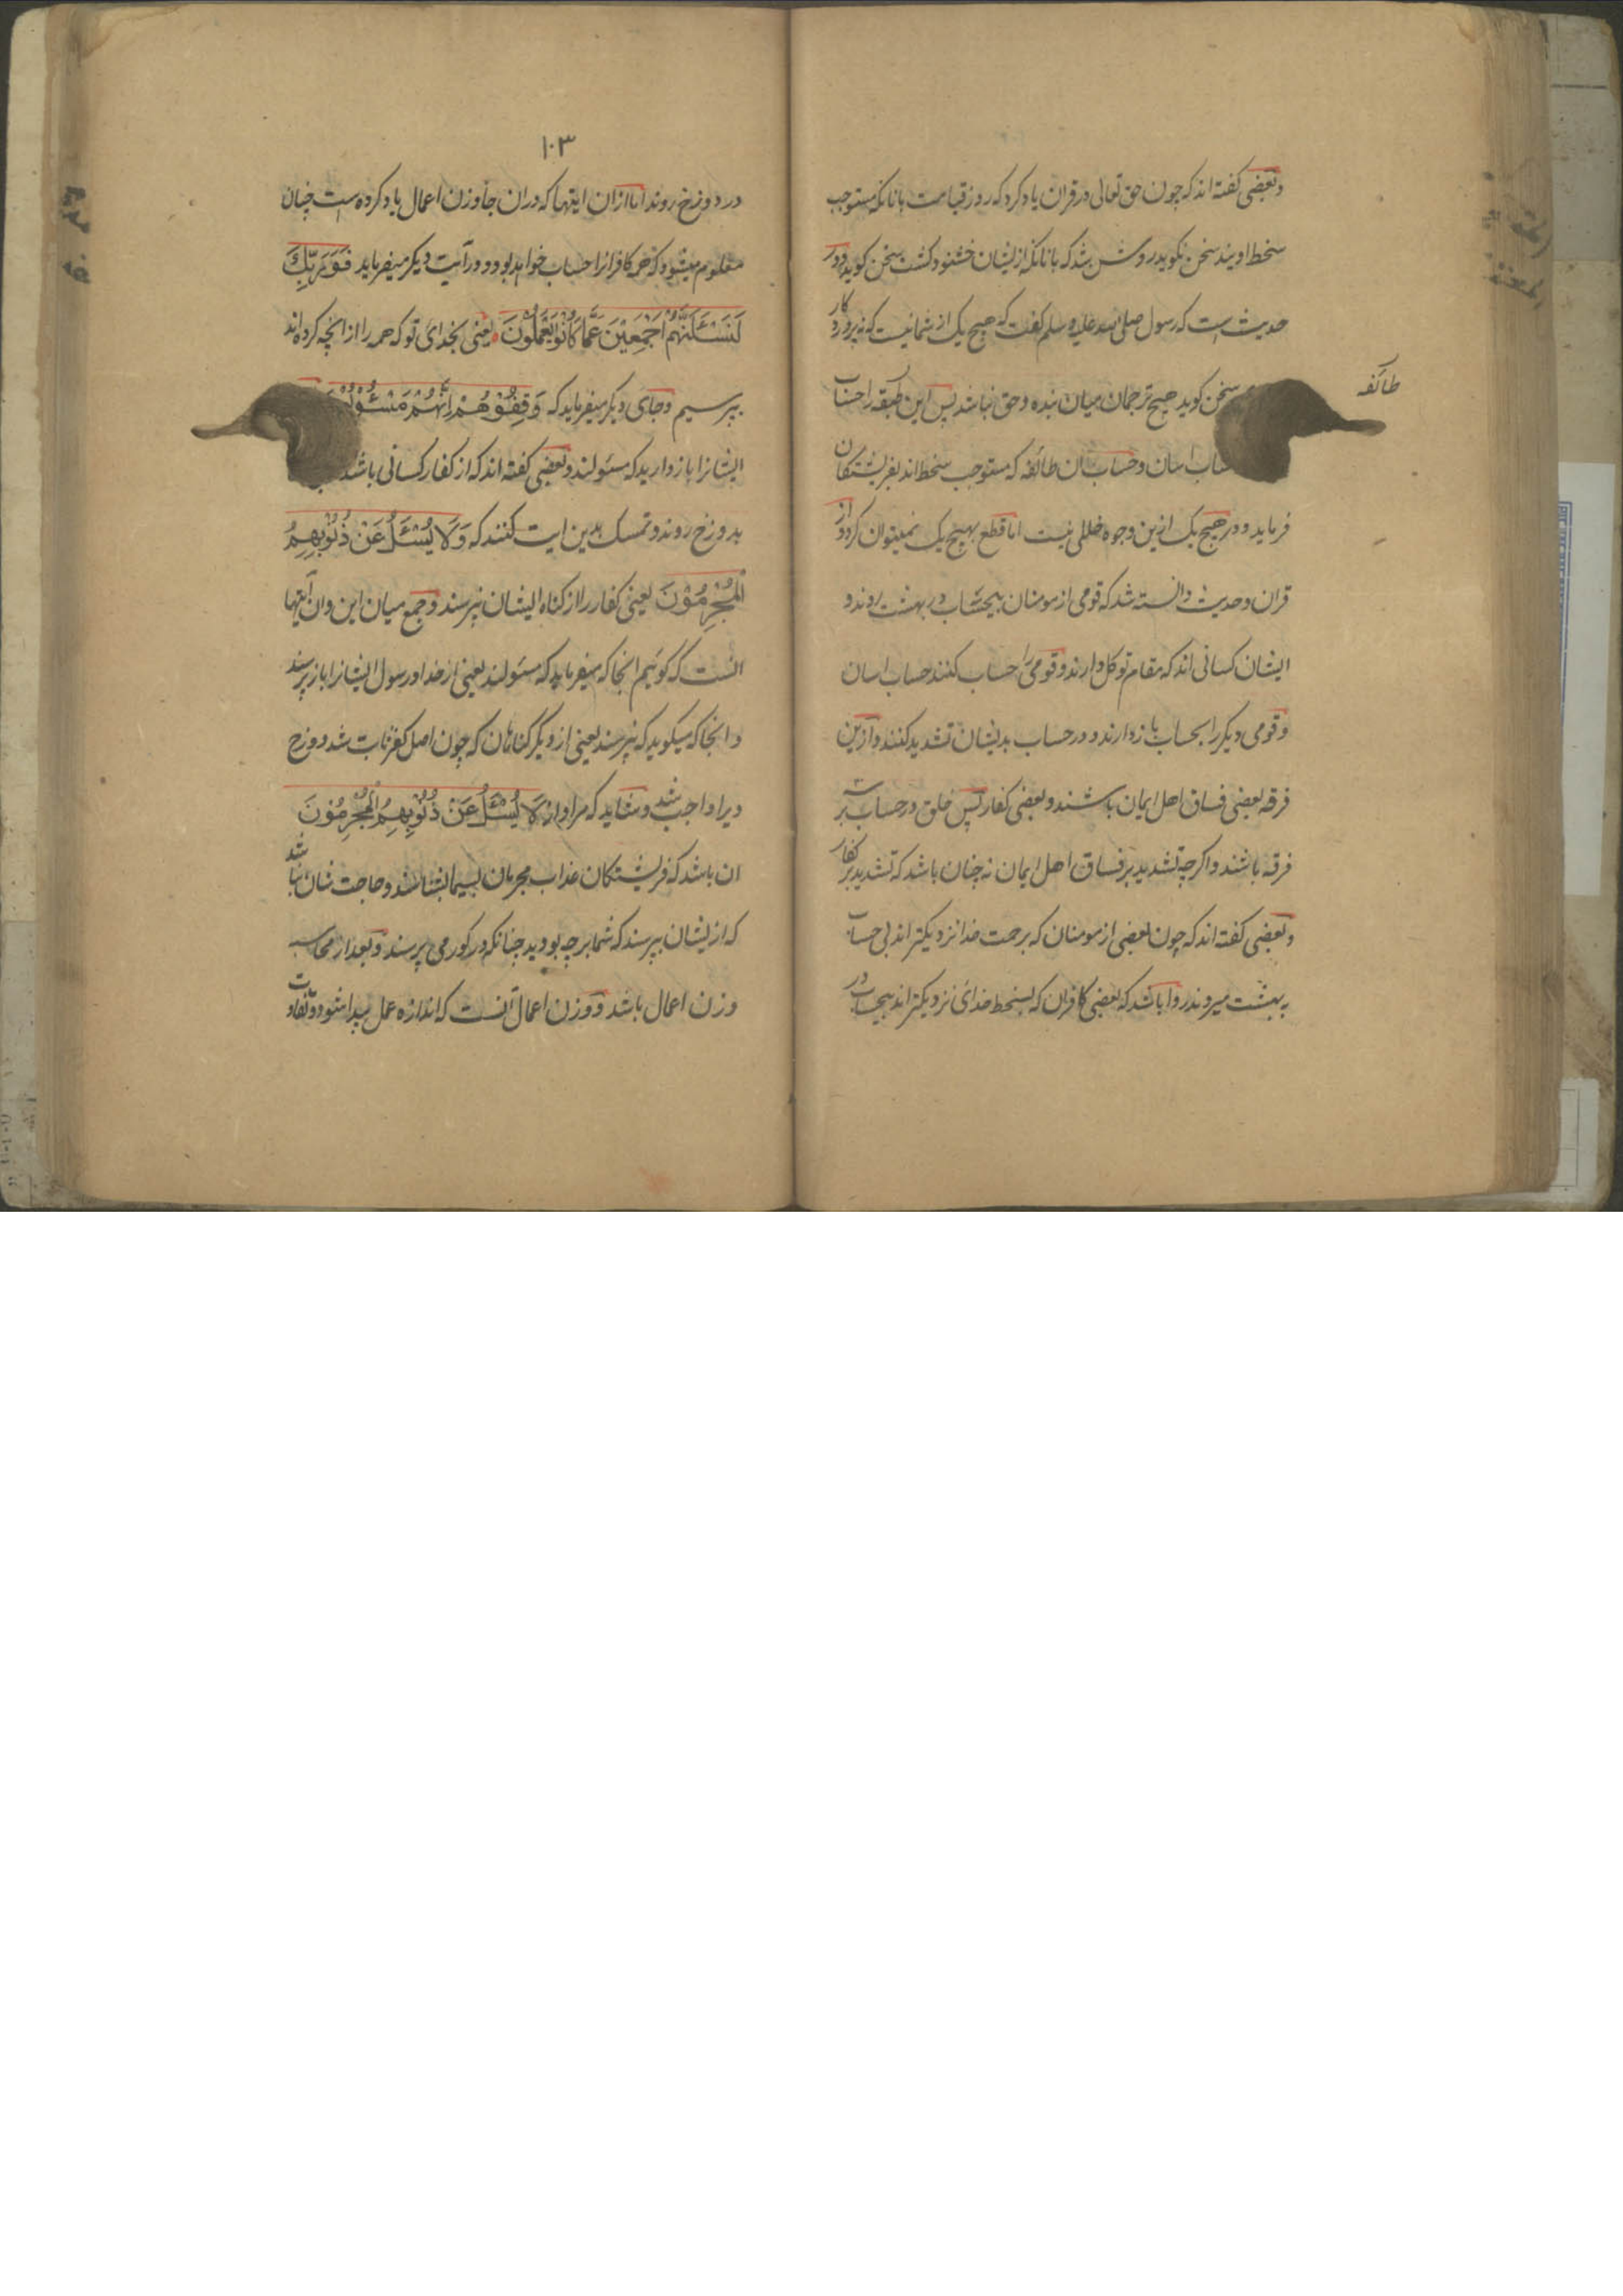 وبعضی کفته اند که چون حق تعالی در قران یاد کرد که روز قیامت بانانکه مستوجب
سخط اویند سخن نکوید روشن شد که بانانکه ازیشان خشنود کشت سخن کوید ودر
حدیث است که رسول صلی الله علیه وسلم کفت که هیچ یک از شما نیست که نه پروردکار
سخن کوید هیچ ترجمان میان بنده وحق نباشد پس این طبقه را حساب
طائفه
حساب اسان وحساب ان طائفه که مستوجب سخط اند بفریشتکان
فرماید ودر هیچ یک ازین وجوه خللی نیست اما قطع بهیچ یک نمیتوان کرد واز
قران وحدیث دانسته شد که قومی از مومنان بیحساب در بهشت روند و
ایشان کسانی اند که مقام توکل دارند وقومی را حساب کنند حساب اسان
وقومی دیکر را بحساب بازدارند ودر حساب بدیشان تشدید کنند وازین
فرقه بعضی فساق اهل ایمان باشند وبعضی کفار پس خلق در حساب بر سه
فرقه باشند واکرچه تشدید بر فساق اهل ایمان نه چنان باشد که تشدید بر کفار
وبعضی کفته اند که چون بعضی از مومنان که برحمت خدا نزدیکتر اند بی حساب
به بهشت میروند روا باشد که بعضی کافران که بسخط خدای نزدیکتر اند بیحساب در
۱۰۳
در دوزخ روند اما ازان ایتها که دران جا وزن اعمال یاد کرده است چنان
معلوم میشود که همه کافرانرا حساب خواهد بود ودر آیت دیکر میفرماید فَوَرَبِّكَ
لَنَسْئَلَنَّهُمْ اَجْمَعِيْنَ عَمَّا كَانُوْا يَعْمَلُوْنَ یعنی بخدای تو که همه را از انچه کرده اند
بپرسیم وجای دیکر میفرماید که وَقِفُوْهُمْ اِنَّهُمْ مَسْئُوْلُوْنَ
ایشانرا بازدارید که مسئولند وبعضی کفته اند که از کفار کسانی باشند
بدوزخ روند وتمسک بدین ایت کنند که وَلَا يُسْئَلُ عَنْ ذُنُوْبِهِمُ
الْمُجْرِمُوْنَ یعنی کفار را از کناه ایشان نپرسند وجمع میان این وان ایتها
انست که کوئیم انجا که میفرماید که مسئولند یعنی از خدا ورسول ایشانرا باز پرسند
وانجا که میکوید که نپرسند یعنی از دیکر کناهان که چون اصل کفر ثابت شد دوزخ
ویرا واجب شد وشاید که مراد از لَا يُسْئَلُ عَنْ ذُنُوْبِهِمُ الْمُجْرِمُوْنَ
ان باشد که فریشتکان عذاب مجرمان بسیما بشناسند وحاجت شان نباشد
که ازیشان بپرسند که شما بر چه بودید چنانکه در کور می پرسند وبعد از محاسبه
وزن اعمال باشد ووزن اعمال آنست که اندازه عمل پیدا شود وتفاوت